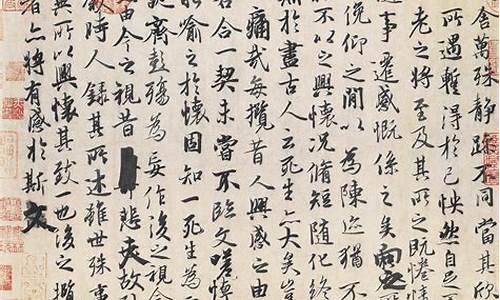 舍萬殊靜躁不同當其欣
所遇蹔得於己怏然自
老之將至及其所之既惓
事遷感慨係之矣向之
俛仰之閒以為陳迹猶不
不以之興懷況脩短隨化終
於盡古人云死生亦大矣豈
痛哉每攬昔人興感之由
合一契未嘗不臨文嗟悼
喻之於懷固知一死生為
齊彭殤為妄作後之視今
由今之視昔悲夫故列
時人錄其所述雖世殊事
所以興懷其致一也後之攬
者亦將有感於斯文